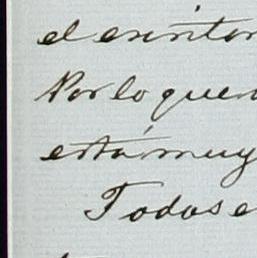 el escritor
Por lo que
está muy
Todos e